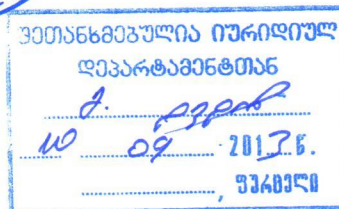 შეთანხმებულია იურიდიულ
დეპარტამენტთან
10 09 2013 წ.
, ფურცელი